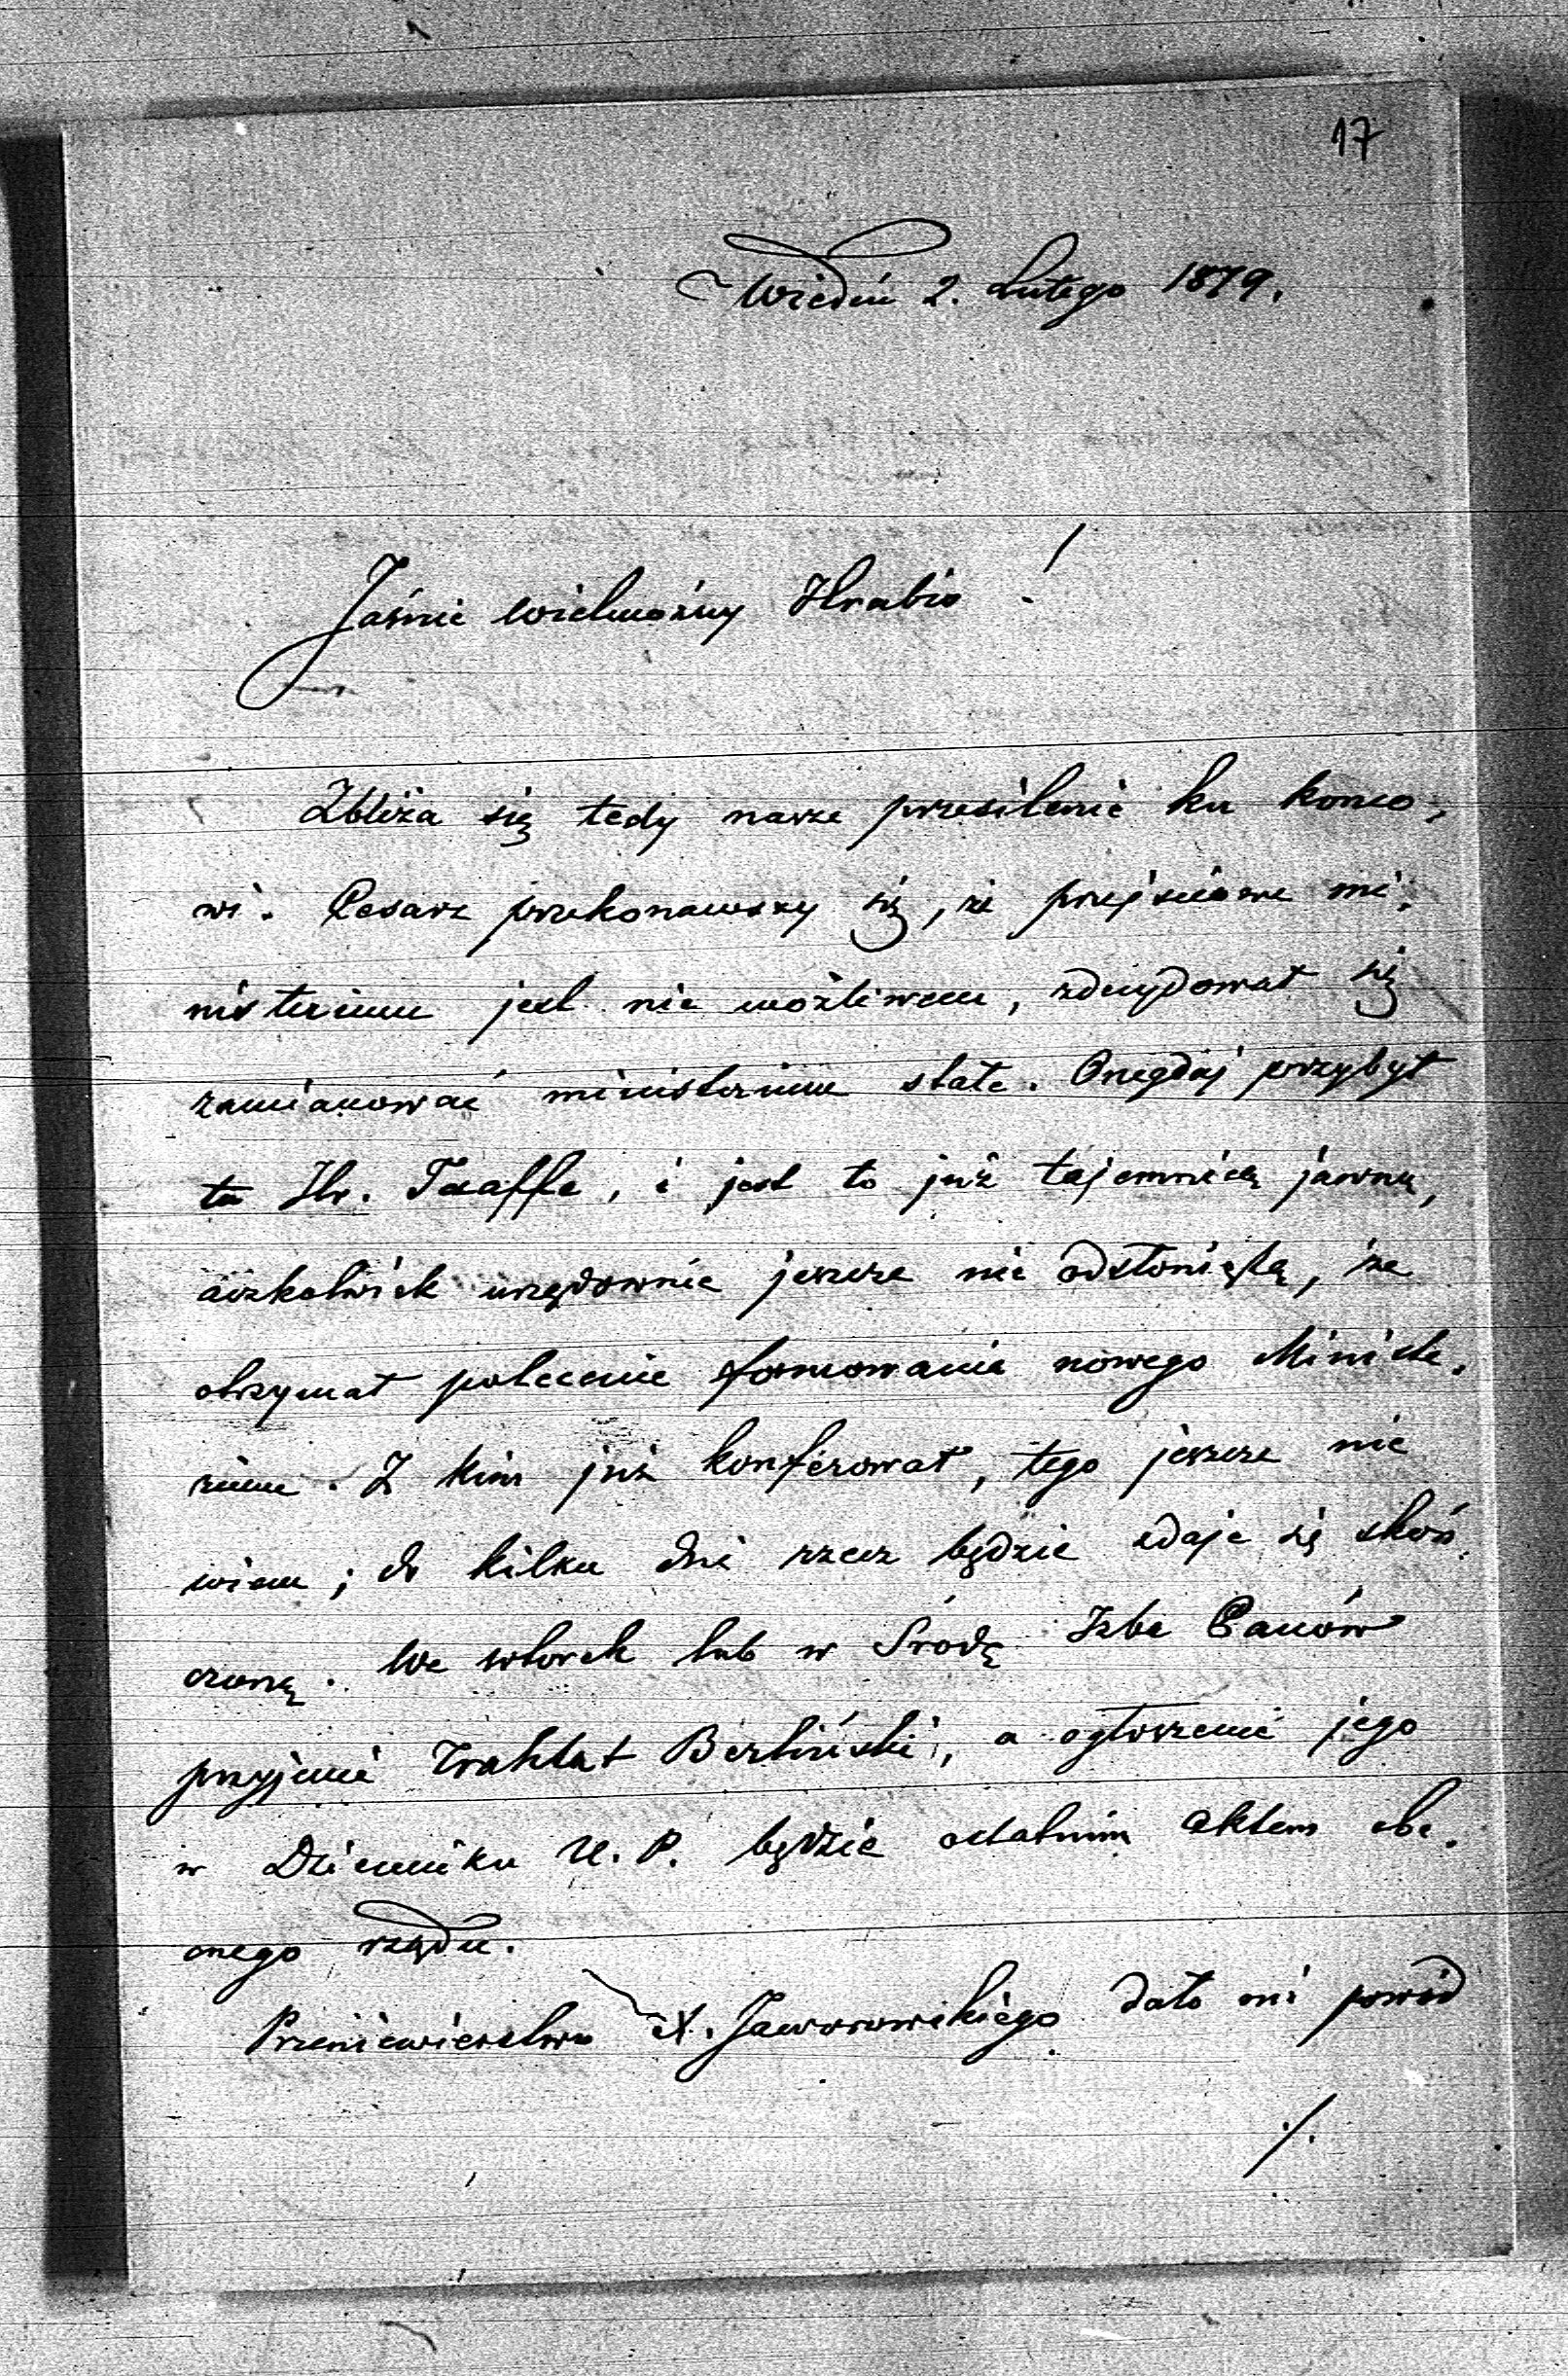 17
Wiedeń 2. Lutego 1879.
Jaśnie Wielmożny Hrabio !
Zbliża się tedy nasze przesilenie ku końco-
wi. Cesarz przekonawszy się, że przejściowe mi-
nisterium jest nie możliwem, zdecydował się
zamianować ministerium stałe. Onegdaj przybył
tu Hr. Taaffe, i jest to już tajemnicą jawną,
aczkolwiek urzędownie jeszcze nie odsłoniętą, że
otrzymał polecenie formowania nowego Ministe-
rium. Z kim już konferował, tego jeszcze nie
wiem; do kilku dni rzecz będzie zdaje się skoń-
czoną. We wtorek lub w Środę Izba Panów
przyjmie Traktat Berliński, a ogłoszenie jego
w Dzienniku U. P. będzie ostatnim aktem obe-
cnego rządu.
Przeniewierstwo A. Jaworowskiego dało mi powód
./.